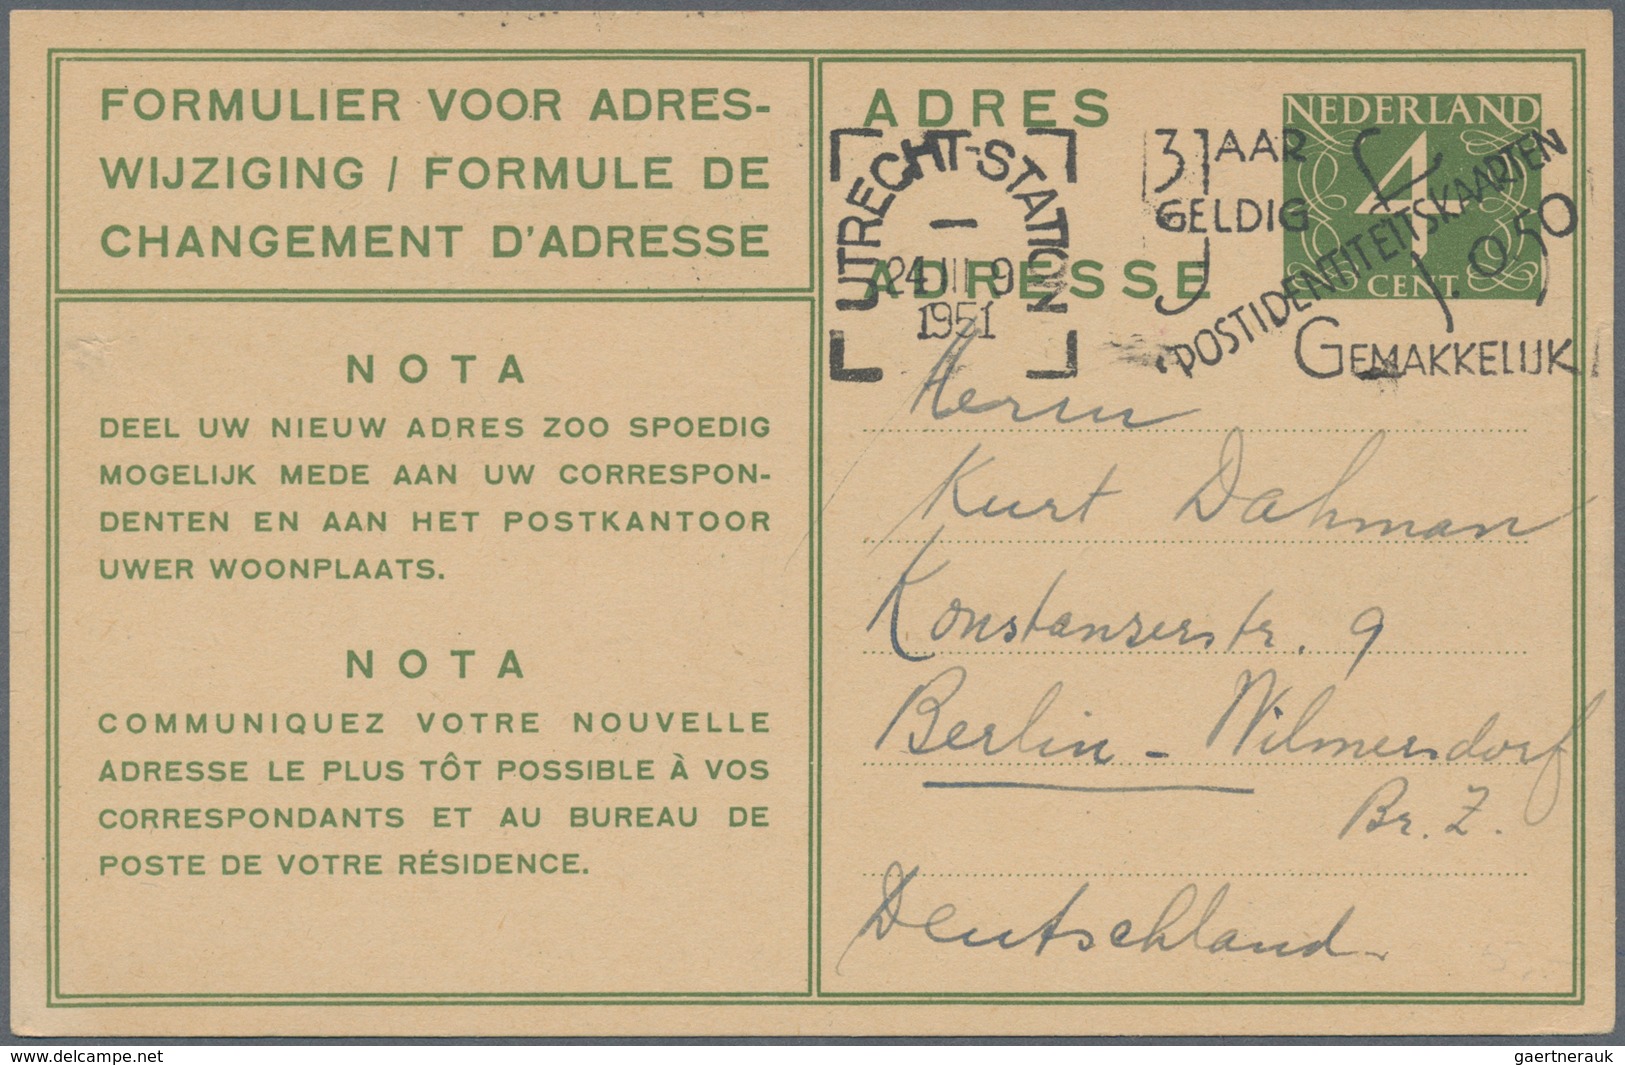 FORMULIER VOOR ADRES-
WIJZIGING / FORMULE DE
CHANGEMENT D'ADRESSE
NOTA
DEEL UW NIEUW ADRES ZOO SPOEDIG
MOGELIJK MEDE AAN UW CORRESPON-
DENTEN EN AAN HET POSTKANTOOR
UWER WOONPLAATS.
NOTA
COMMUNIQUEZ VOTRE NOUVELLE
ADRESSE LE PLUS TÔT POSSIBLE À VOS
CORRESPONDANTS ET AU BUREAU DE
POSTE DE VOTRE RÉSIDENCE.
ADRES
ADRESSE
NEDERLAND
4
CENT
UTRECHT-STATION
24 III 9
1951
3 JAAR
GELDIG
POSTIDENTITEITSKAARTEN
f. 0.50
GEMAKKELIJK
Herrn
Kurt Dahman
Konstanzerstr. 9
Berlin - Wilmersdorf
Br. Z.
Deutschland
delcampe.net
gaertnerauk